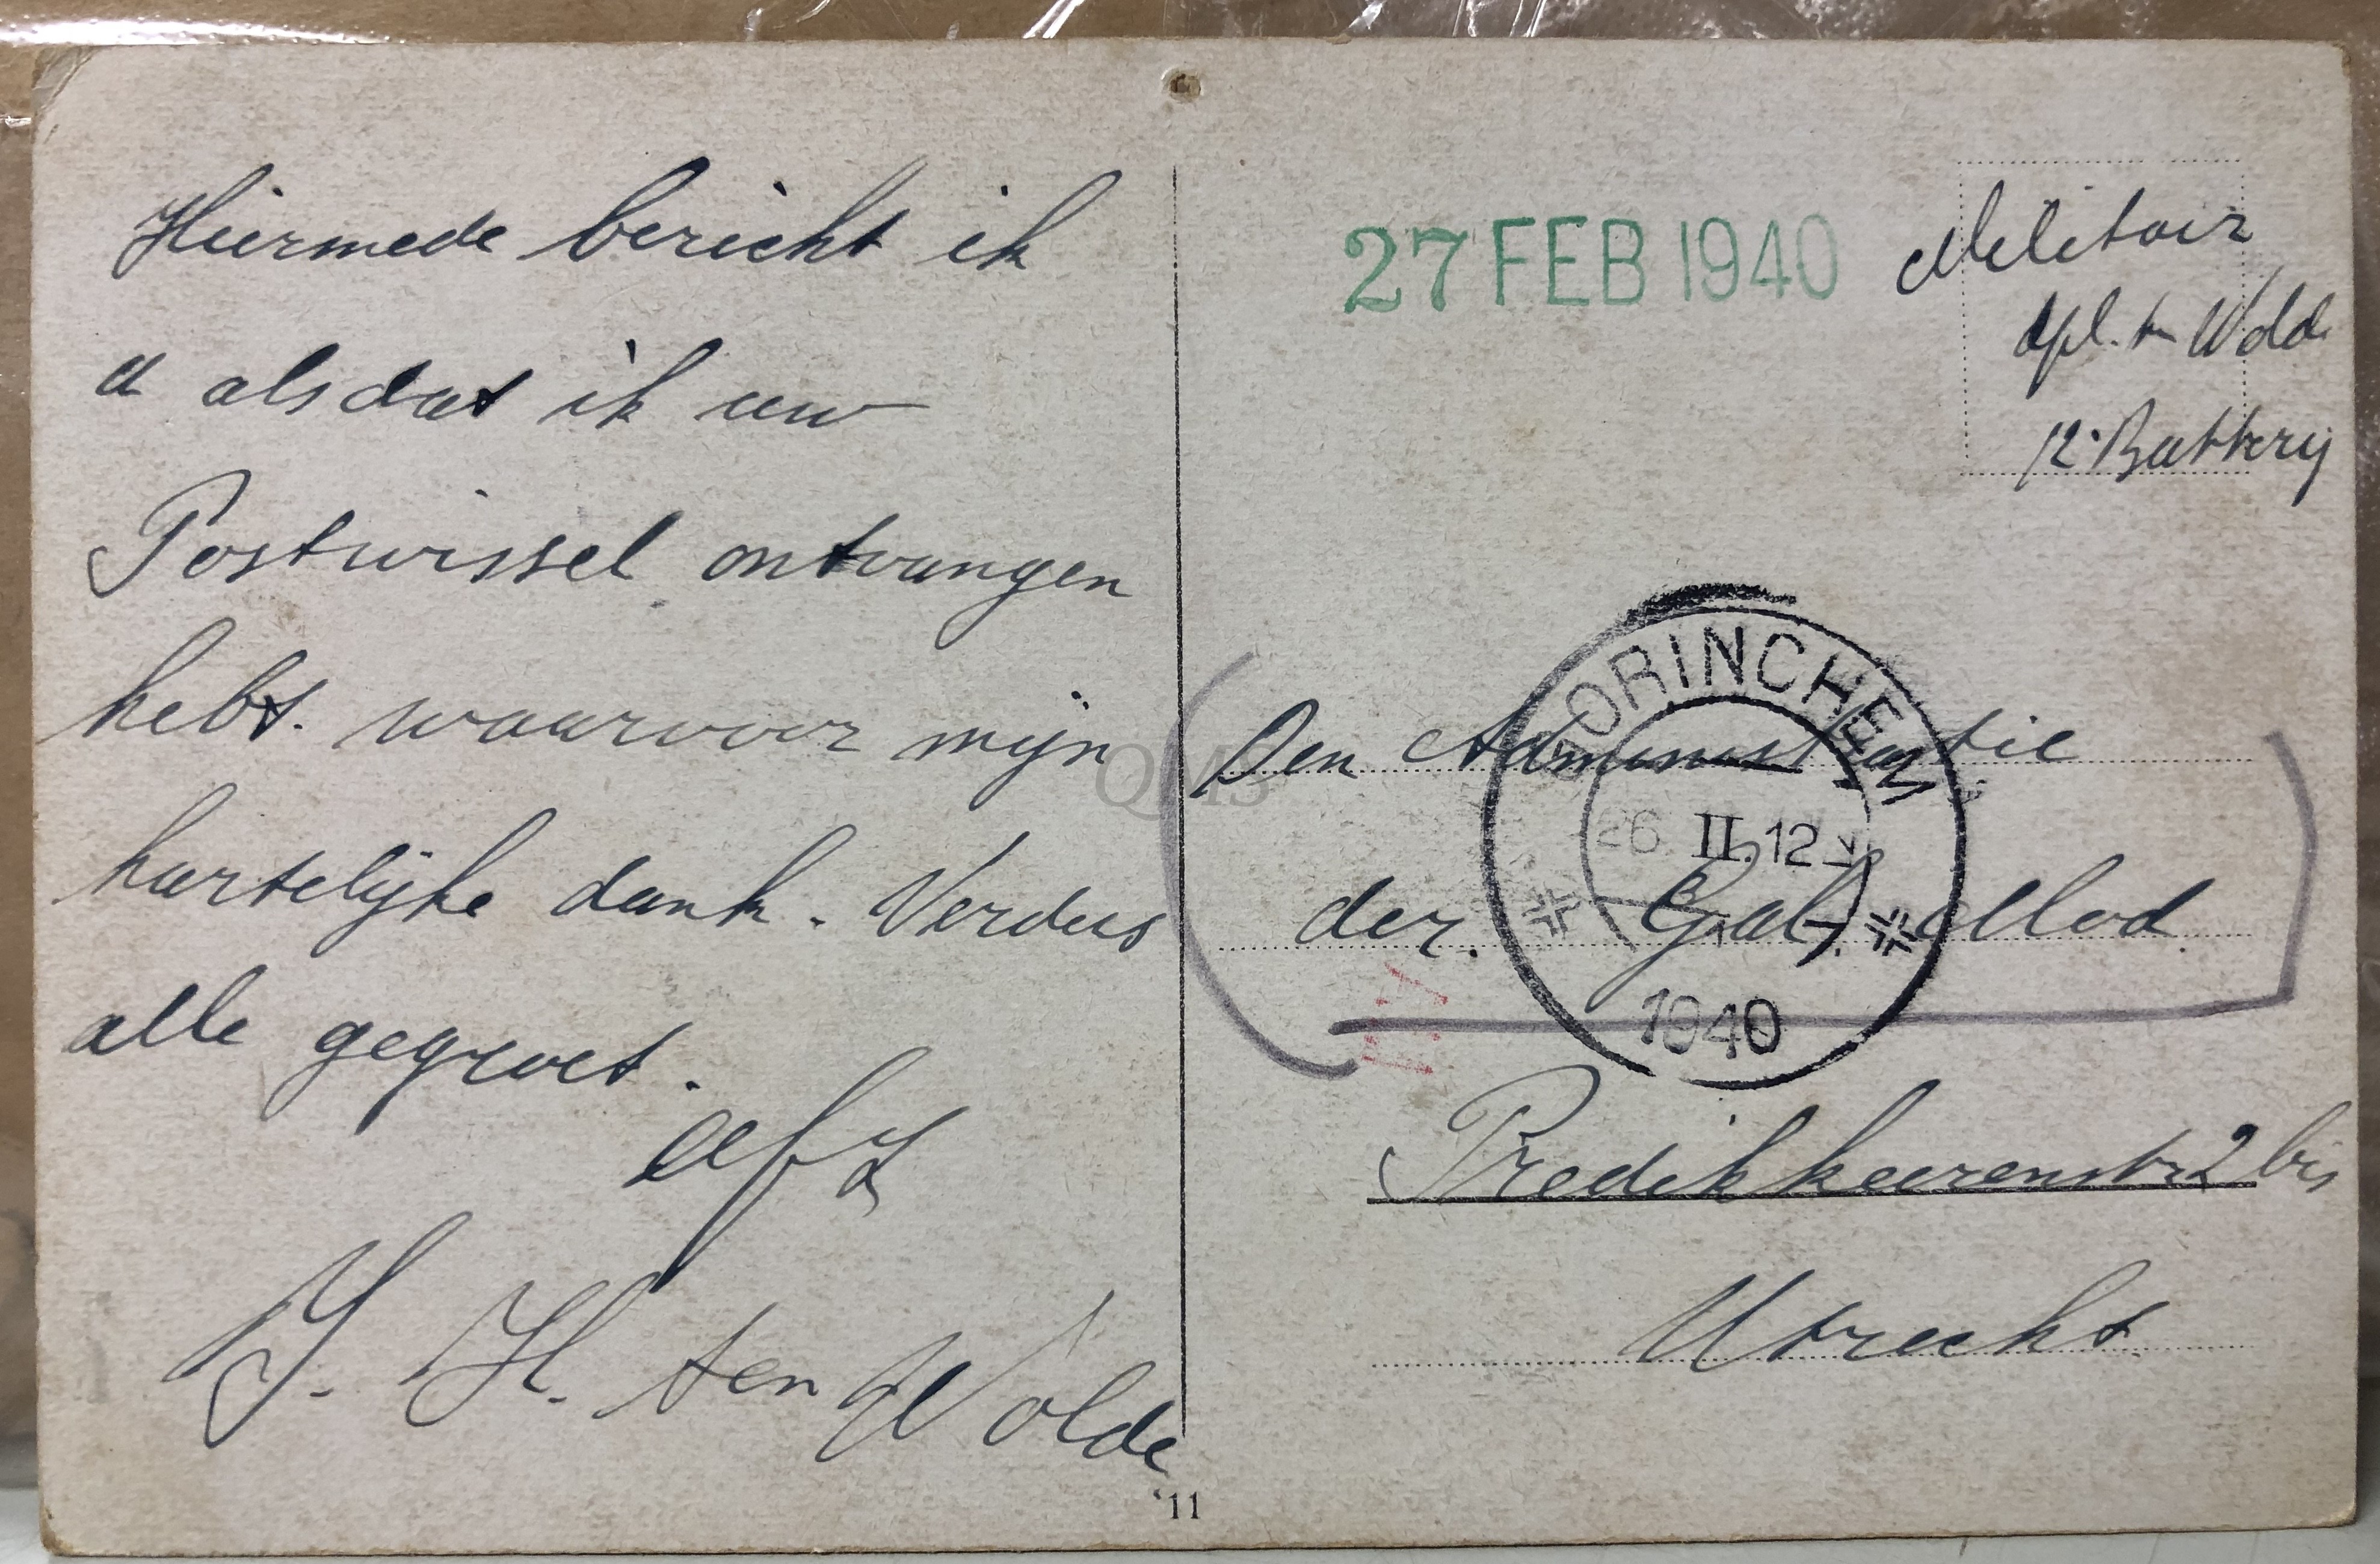 Hiermede bericht ik
u als dat ik uw
Postwissel ontvangen
hebt. waarvoor mijn
hartelijke dank. Verders
alle gegroet.
Afz
J. H. ten Wolde
27 FEB 1940
Militair
dpl. t. Wold.
12e Batterij
GORINCHEM
26 II. 12
1940
Den Administratie
der. Gal. Mod.
Predikheerenstr 2 bis
Utrecht.
QMS
'11